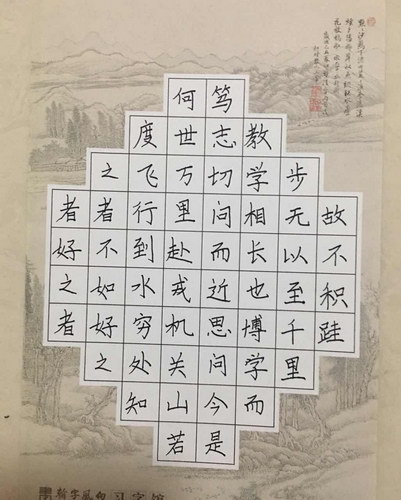 故不积跬
步无以至千里
教学相长也博学而
笃志切问而近思问今是
何世万里赴戎机关山若
度飞行到水穷处知
之者不如好之
者好之者
习字馆